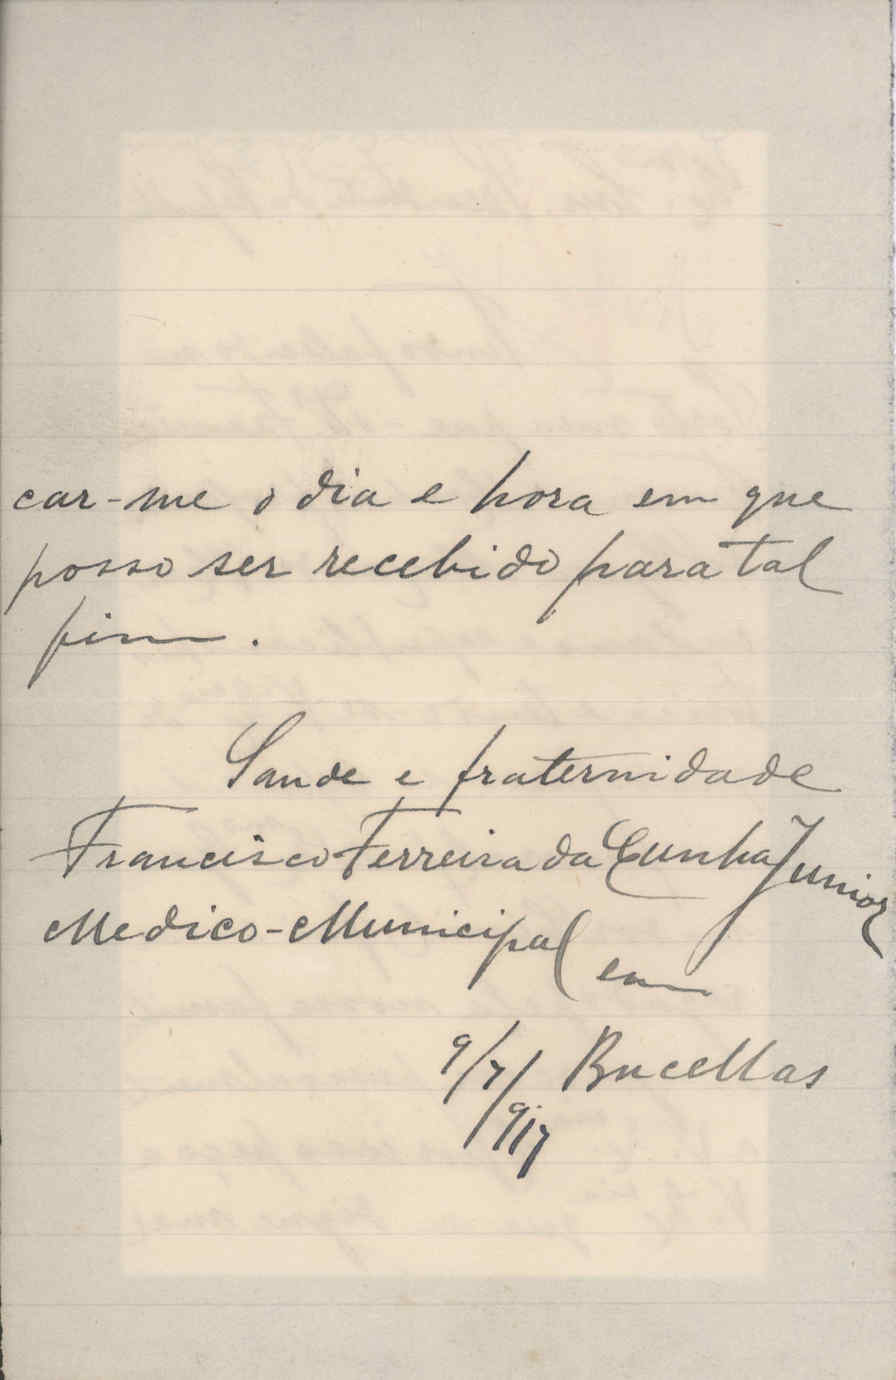 car-me o dia e hora em que
posso ser recebido para tal
fim.
Saude e fraternidade
Francisco Ferreira da Cunha Junior
Medico-Municipal em
9/7/917 Bucellas